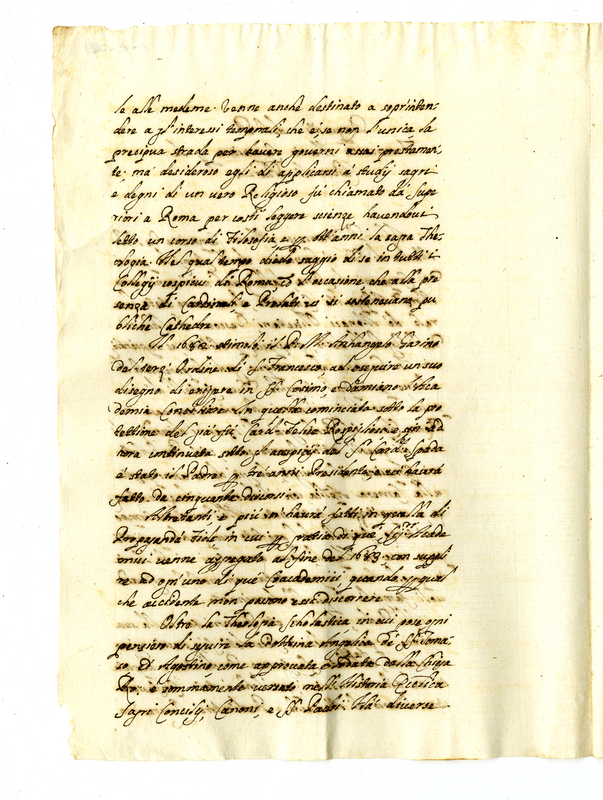 le alle medeme. Venne anche destinato a soprinten-
dere a gl'interessi temporali, che è se non l'unica, la
precipua strada per havere governi assai prestamen-
te; ma desideroso egli di applicarsi a studij sagri
e degni di un vero Religioso fù chiamato da' supe
riori a Roma per costì leggere scienze havendovi
letto un corso di Filosofia, e pp. ott'anni la sagra The-
ologia. Nel qual tempo diede saggio di se in tutti i
Collegij cospicui di Roma cō l'occasione che alla pre
senza di Cardinali, e Prelati vi si sostenevano pu
bliche Cathedre.
Il 1682 stimolò il P. M. Archangelo Garino
del terz. Ordine di S. Francesco ad eseguire un suo
disegno di erigere in SS. Cosimo e Damiano l'Aca
demia Conciliare. In questa cominciata sotto la pro
tettione del già fù Card. Felice Rospigliosi e sin ad
hora continuata sotto gl'auspicij del S. Card. Spada
è stato il Padre p. trè anni Presidente, e vi haurà
fatto da cinquanta discorsi.
Altretanti e più n'haurà fatti in quella di
Propaganda Fide in cui p. gratia di que' Sig.ri Acade
mici venne aggregato al fine del 1683 con suppli
re ad ogn'uno di que' Coacademici, quando p. qual
che accidente non possono essi discorrere.
Oltre la Theologia Scholastica in cui pose ogni
pensier di seguire la dottrina Angelica de' SS. Toma
so ed Agostino come approvata, e lodata dalla Chiesa
è sommamente versato nell'Historia
Sagri Concilij, Canoni, e SS. Padri. Hà diverse